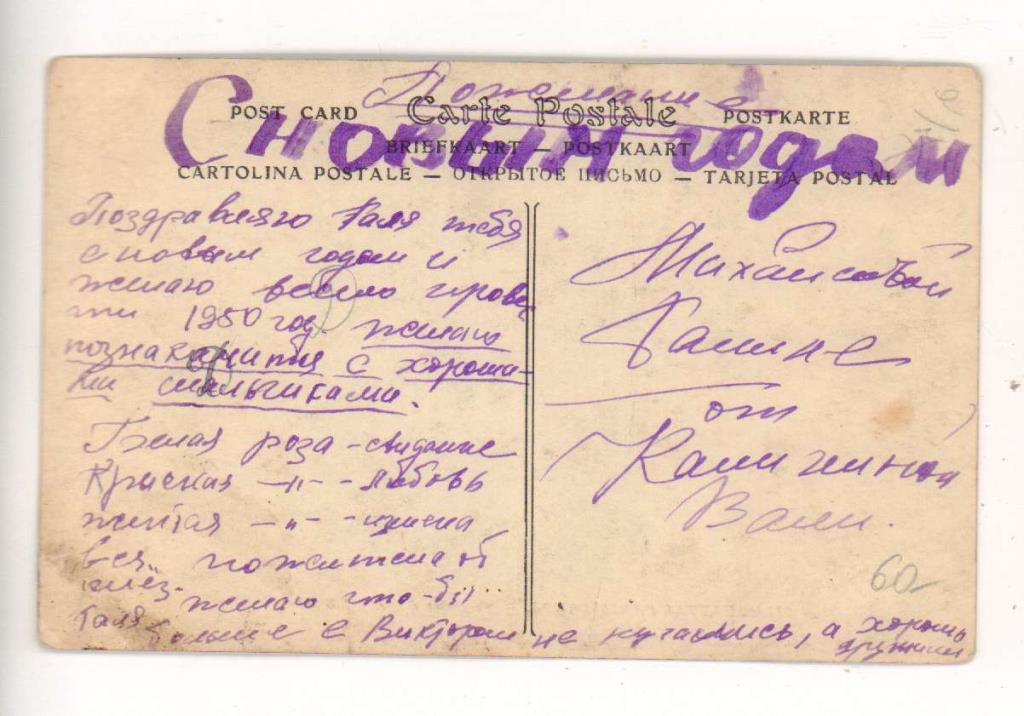 Пожелание
POST CARD Carte Postale POSTKARTE
С новым годом
BRIEFKAART — POSTKAART
CARTOLINA POSTALE — ОТКРЫТОЕ ПИСЬМО — TARJETA POSTAL
Поздравляю Галя тебя
с новым годом и
желаю весело прове
ти 1950 год. желаю
познакомится с хороши-
ми мальчиками.
Белая роза - свидание
Красная —„— - любовь
желтая —„— - измена
желаю что-бы
Галя больше с Виктором не кугались, а хорошо
дружили
Галине
от
Калижиной
Вали.
60-